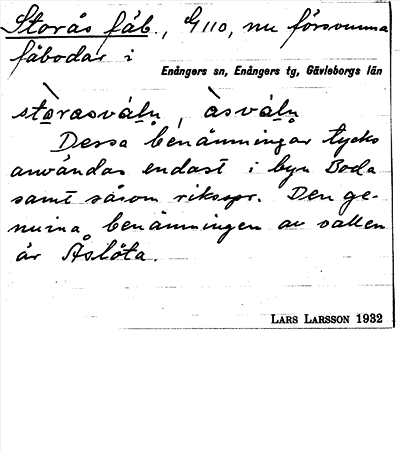 Storås fäb., G110, nu försvunna
fäbodar i
Enångers sn, Enångers tg, Gävleborgs län
stòrasvál̥n, àsvál̥n
Dessa benämningar tycks
användas endast i byn Boda
samt såsom riksspr. Den ge-
nuina benämningen av vallen
är Åslöta.
LARS LARSSON 1932